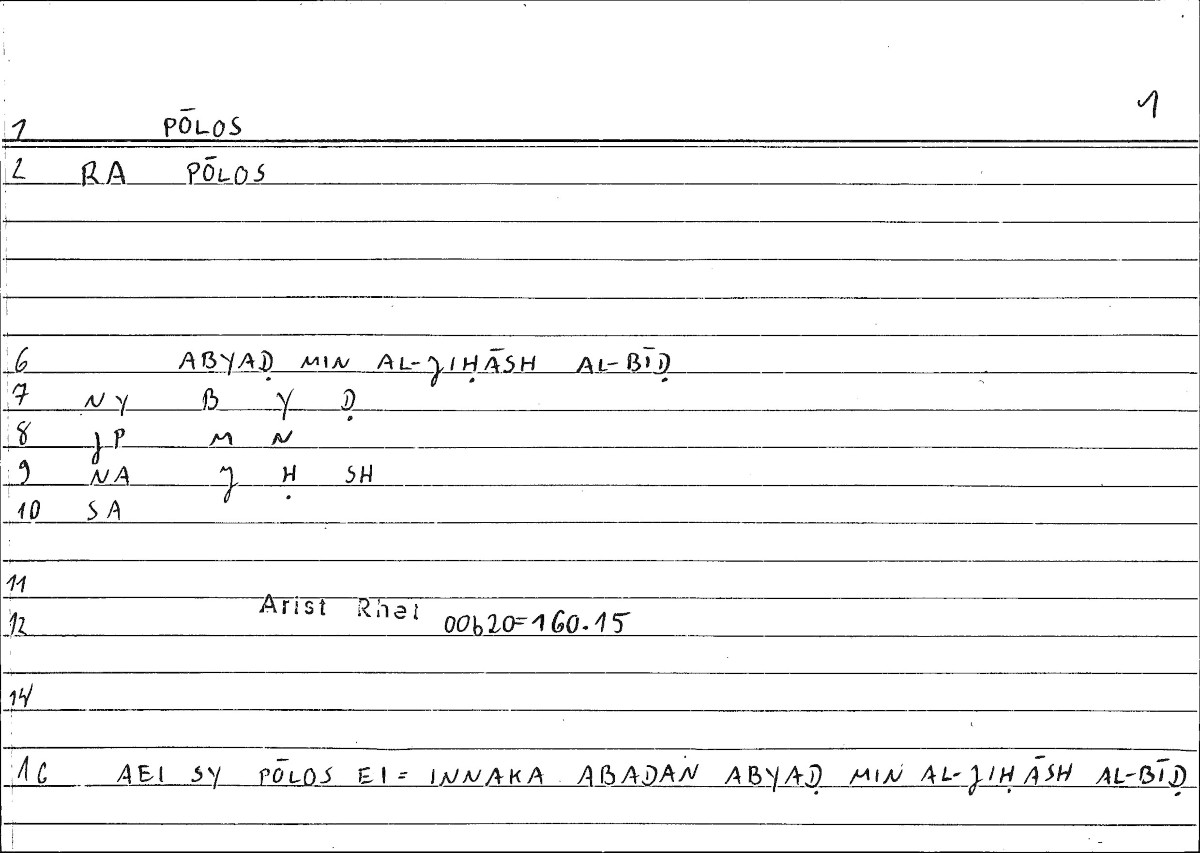 1
1 PŌLOS
2 RA PŌLOS
6 ABYAḌ MIN AL-JIḤĀSH AL-BĪḌ
7 NY B Y Ḍ
8 JP M N
9 NA J Ḥ SH
10 SA
11
Arist Rhet 00b20=160.15
12
14
16 AEI SY PŌLOS EI = INNAKA ABADAN ABYAḌ MIN AL-JIḤĀSH AL-BĪḌ